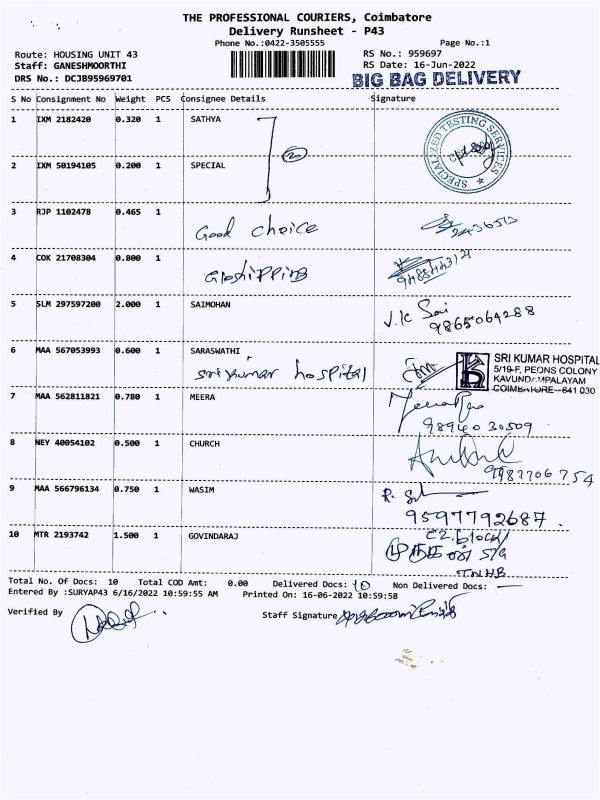 THE PROFESSIONAL COURIERS, Coimbatore
Delivery Runsheet - P43
Phone No.:0422-3505555
Page No.:1
Route: HOUSING UNIT 43
RS No.: 959697
Staff: GANESHMOORTHI
RS Date: 16-Jun-2022
DRS No.: DCJB95969701
BIG BAG DELIVERY
S No Consignment No Weight PCS Consignee Details Signature
1 IXM 2182420 0.320 1 SATHYA
SPECIALIZED TESTING SERVICES
2
2 IXM 50194105 0.200 1 SPECIAL
3 RJP 1102478 0.465 1
Good choice
4 COK 21708304 0.800 1
5 SLM 297597200 2.000 1 SAIMOHAN
V.K Sai
9865064288
6 MAA 567053993 0.600 1 SARASWATHI
Sri kumar hospital
SRI KUMAR HOSPITAL
5/19-F, PEONS COLONY
KAVUNDAMPALAYAM
COIMBATORE-641 030
7 MAA 562811821 0.780 1 MEERA
98940 30509
8 NEY 40054102 0.500 1 CHURCH
9 MAA 566796134 0.750 1 WASIM
9597792687
10 MTR 2193742 1.500 1 GOVINDARAJ
E2. block
TNHB
Total No. Of Docs: 10 Total COD Amt: 0.00 Delivered Docs: 10 Non Delivered Docs: —
Entered By :SURYAP43 6/16/2022 10:59:55 AM Printed On: 16-06-2022 10:59:58
Verified By
Staff Signature